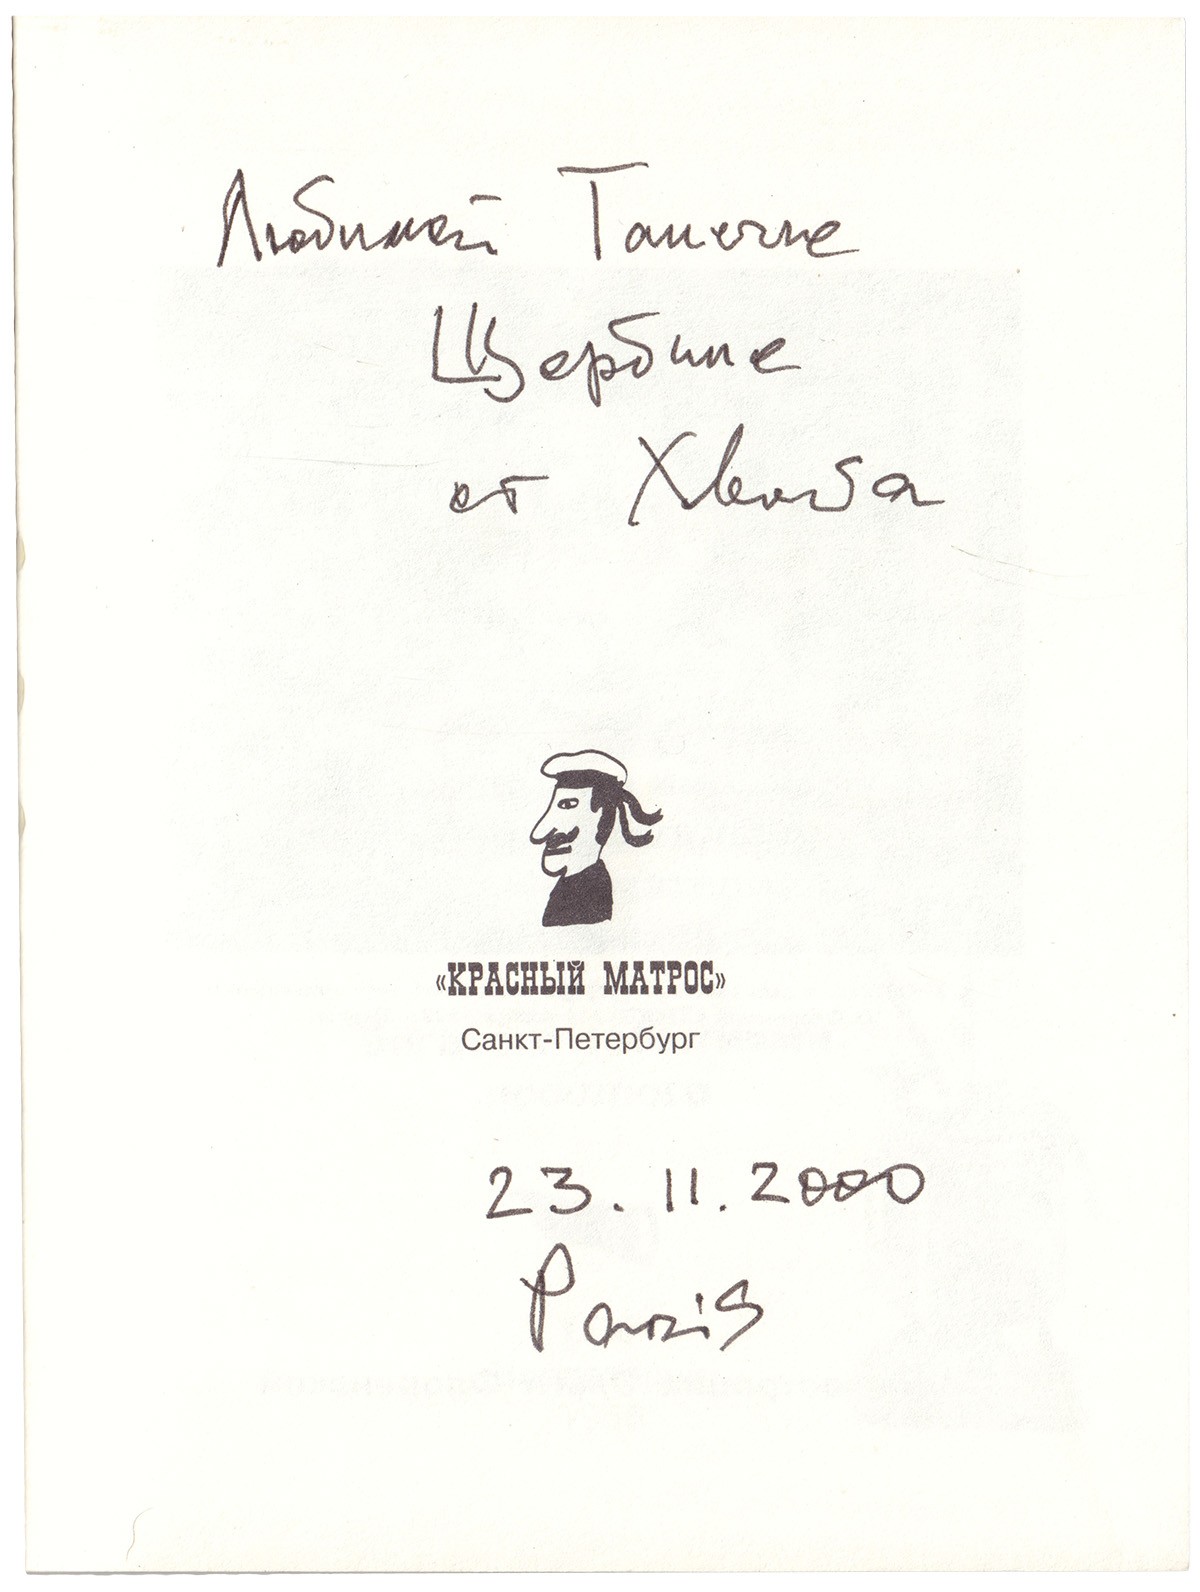 Любимой Танечке
Щербине
от Хвоста
«КРАСНЫЙ МАТРОС»
Санкт-Петербург
23.11.2000
Paris